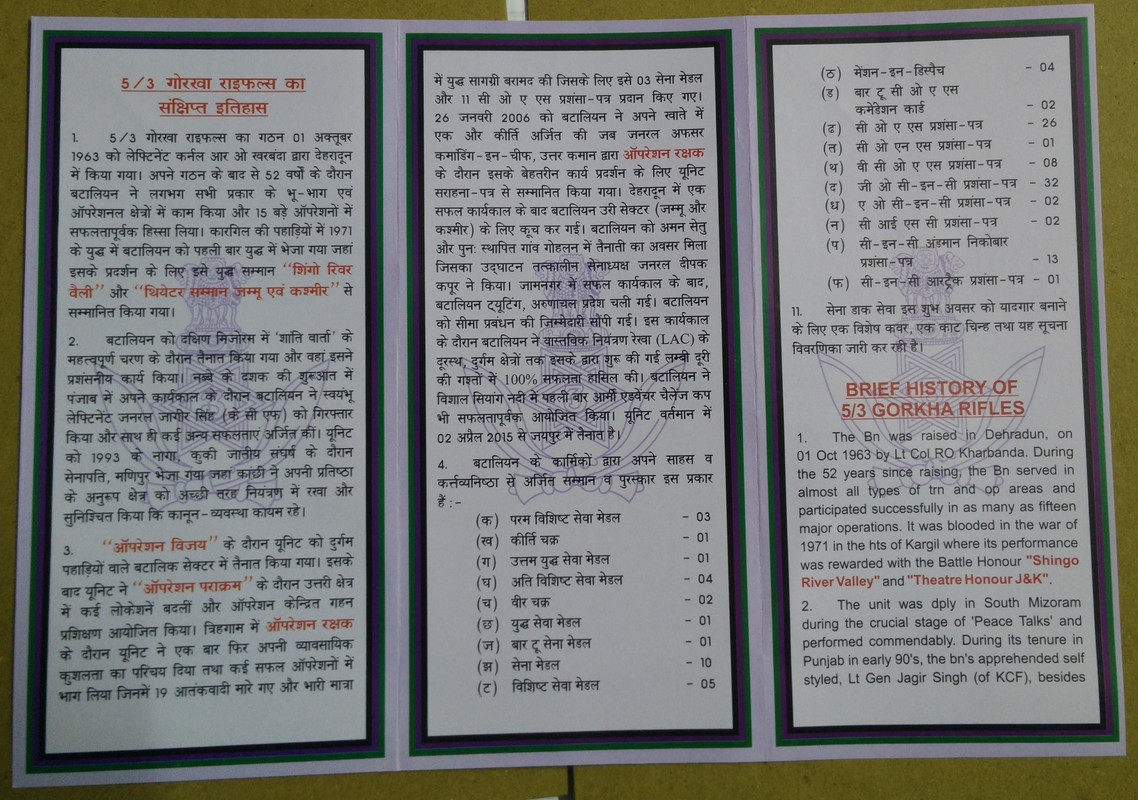 5/3 गोरखा राइफल्स का
संक्षिप्त इतिहास
1. 5/3 गोरखा राइफल्स का गठन 01 अक्तूबर
1963 को लेफ्टिनेंट कर्नल आर ओ खरबंदा द्वारा देहरादून
में किया गया। अपने गठन के बाद से 52 वर्षों के दौरान
बटालियन ने लगभग सभी प्रकार के भू-भाग एवं
ऑपरेशनल क्षेत्रों में काम किया और 15 बड़े ऑपरेशनों में
सफलतापूर्वक हिस्सा लिया। कारगिल की पहाड़ियों में 1971
के युद्ध में बटालियन को पहली बार युद्ध में भेजा गया जहां
इसके प्रदर्शन के लिए इसे युद्ध सम्मान "शिंगो रिवर
वैली" और "थियेटर सम्मान जम्मू एवं कश्मीर" से
सम्मानित किया गया।
2. बटालियन को दक्षिण मिजोरम में 'शांति वार्ता' के
महत्वपूर्ण चरण के दौरान तैनात किया गया और वहां इसने
प्रशंसनीय कार्य किया। नब्बे के दशक की शुरूआत में
पंजाब में अपने कार्यकाल के दौरान बटालियन ने स्वयंभू
लेफ्टिनेंट जनरल जागीर सिंह (के सी एफ) को गिरफ्तार
किया और साथ ही कई अन्य सफलताएं अर्जित कीं। यूनिट
को 1993 के नागा, कुकी जातीय संघर्ष के दौरान
सेनापति, मणिपुर भेजा गया जहां कांछी ने अपनी प्रतिष्ठा
के अनुरूप क्षेत्र को अच्छी तरह नियंत्रण में रखा और
सुनिश्चित किया कि कानून-व्यवस्था कायम रहे।
3. "ऑपरेशन विजय" के दौरान यूनिट को दुर्गम
पहाड़ियों वाले बटालिक सेक्टर में तैनात किया गया। इसके
बाद यूनिट ने "ऑपरेशन पराक्रम" के दौरान उत्तरी क्षेत्र
में कई लोकेशनें बदलीं और ऑपरेशन केन्द्रित गहन
प्रशिक्षण आयोजित किया। त्रिहगाम में ऑपरेशन रक्षक
के दौरान यूनिट ने एक बार फिर अपनी व्यावसायिक
कुशलता का परिचय दिया तथा कई सफल ऑपरेशनों में
भाग लिया जिनमें 19 आतंकवादी मारे गए और भारी मात्रा
में युद्ध सागग्री बरामद की जिसके लिए इसे 03 सेना मेडल
और 11 सी ओ ए एस प्रशंसा-पत्र प्रदान किए गए।
26 जनवरी 2006 को बटालियन ने अपने खाते में
एक और कीर्ति अर्जित की जब जनरल अफसर
कमाडिंग-इन-चीफ, उत्तर कमान द्वारा ऑपरेशन रक्षक
के दौरान इसके बेहतरीन कार्य प्रदर्शन के लिए यूनिट
सराहना-पत्र से सम्मानित किया गया। देहरादून में एक
सफल कार्यकाल के बाद बटालियन उरी सेक्टर (जम्मू और
कश्मीर) के लिए कूच कर गई। बटालियन को अमन सेतु
और पुनः स्थापित गांव गोहलन में तैनाती का अवसर मिला
जिसका उद्घाटन तत्कालीन सेनाध्यक्ष जनरल दीपक
कपूर ने किया। जामनगर में सफल कार्यकाल के बाद,
बटालियन ट्यूटिंग, अरुणाचल प्रदेश चली गई। बटालियन
को सीमा प्रबंधन की जिम्मेदारी सौंपी गई। इस कार्यकाल
के दौरान बटालियन ने वास्तविक नियंत्रण रेखा (LAC) के
दूरस्थ, दुर्गम क्षेत्रों तक इसके द्वारा शुरू की गई लम्बी दूरी
की गश्तों में 100% सफलता हासिल की। बटालियन ने
विशाल सियांग नदी में पहली बार आर्मी एडवेंचर चैलेंज कप
भी सफलतापूर्वक आयोजित किया। यूनिट वर्तमान में
02 अप्रैल 2015 से जयपुर में तैनात है।
4. बटालियन के कार्मिकों द्वारा अपने साहस व
कर्त्तव्यनिष्ठा से अर्जित सम्मान व पुरस्कार इस प्रकार
हैं :-
(क) परम विशिष्ट सेवा मेडल - 03
(ख) कीर्ति चक्र - 01
(ग) उत्तम युद्ध सेवा मेडल - 01
(घ) अति विशिष्ट सेवा मेडल - 04
(च) वीर चक्र - 02
(छ) युद्ध सेवा मेडल - 01
(ज) बार टू सेना मेडल - 01
(झ) सेना मेडल - 10
(ट) विशिष्ट सेवा मेडल - 05
(ठ) मेंशन-इन-डिस्पैच - 04
(ड) बार टू सी ओ ए एस
कमेंडेशन कार्ड - 02
(ढ) सी ओ ए एस प्रशंसा-पत्र - 26
(त) सी ओ एन एस प्रशंसा-पत्र - 01
(थ) वी सी ओ ए एस प्रशंसा-पत्र - 08
(द) जी ओ सी-इन-सी प्रशंसा-पत्र - 32
(ध) ए ओ सी-इन-सी प्रशंसा-पत्र - 02
(न) सी आई एस सी प्रशंसा-पत्र - 02
(प) सी-इन-सी अंडमान निकोबार
प्रशंसा-पत्र - 13
(फ) सी-इन-सी आरट्रैक प्रशंसा-पत्र - 01
11. सेना डाक सेवा इस शुभ अवसर को यादगार बनाने
के लिए एक विशेष कवर, एक काट चिन्ह तथा यह सूचना
विवरणिका जारी कर रही है।
BRIEF HISTORY OF
5/3 GORKHA RIFLES
1. The Bn was raised in Dehradun, on
01 Oct 1963 by Lt Col RO Kharbanda. During
the 52 years since raising, the Bn served in
almost all types of trn and op areas and
participated successfully in as many as fifteen
major operations. It was blooded in the war of
1971 in the hts of Kargil where its performance
was rewarded with the Battle Honour "Shingo
River Valley" and "Theatre Honour J&K".
2. The unit was dply in South Mizoram
during the crucial stage of 'Peace Talks' and
performed commendably. During its tenure in
Punjab in early 90's, the bn's apprehended self
styled, Lt Gen Jagir Singh (of KCF), besides